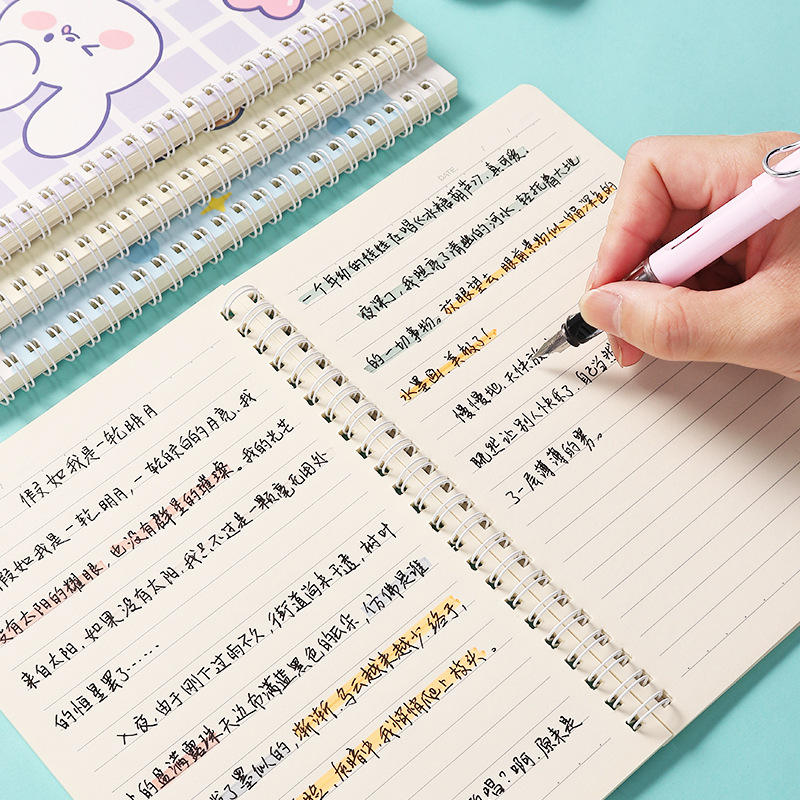 假如我是一轮明月
假如我是一轮明月,一轮皎白的月亮。我
没有太阳的耀眼,也没有群星的璀璨。我的光芒
来自太阳,如果没有太阳,我只不过是一颗毫无用处
的恒星罢了……
入夜,由于刚下过雨不久,街道尚未干透,树叶
的盈满露珠 天边布满蓝黑色的云朵,仿佛是谁
了墨似的,渐渐 乌云越来越少 终于,
脸,黑暗中,我悄悄爬上枝头。
唱?啊,原来是
DATE
一个年幼的娃娃在唱《冰糖葫芦》,真可爱。
夜深了,我照亮了清幽的河水,轻抚着大地
的一切事物。放眼望去,眼前景物似一幅深色的
水墨画,美极了!
慢慢地,天快
让别人快乐了,自己当
了一层薄薄的雾。